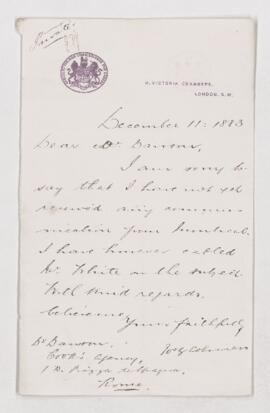 Private
VICTORIA CHAMBERS,
LONDON, S.W.
December 11: 1883
Dear Dr Dawson,
I am sorry to
say that I have not yet
received any commu-
nication from Montreal.
I have however cabled
Mr White on the subject
With kind regards.
believe me,
Yours faithfully,
Dr Dawson
Cook's Agency,
Rome.